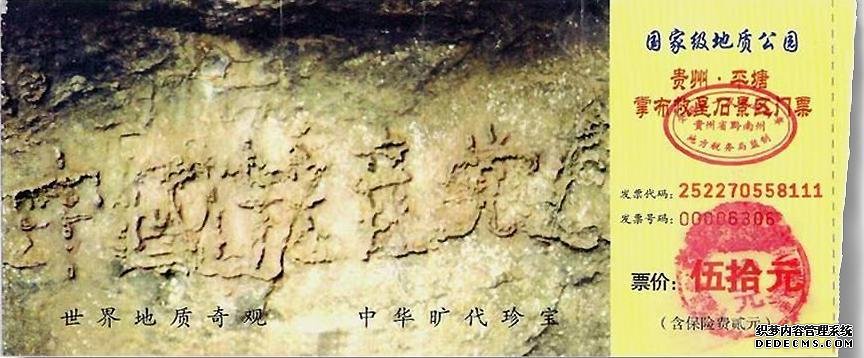 中国共产党亡
世界地质奇观 中华旷代珍宝
国家级地质公园
贵州·平塘
掌布救星石景区门票
贵州省黔南州
地方税务局监制
发票代码:252270558111
发票号码:00006306
票价:伍拾元
(含保险费贰元)
织梦内容管理系统
DEDECMS.COM